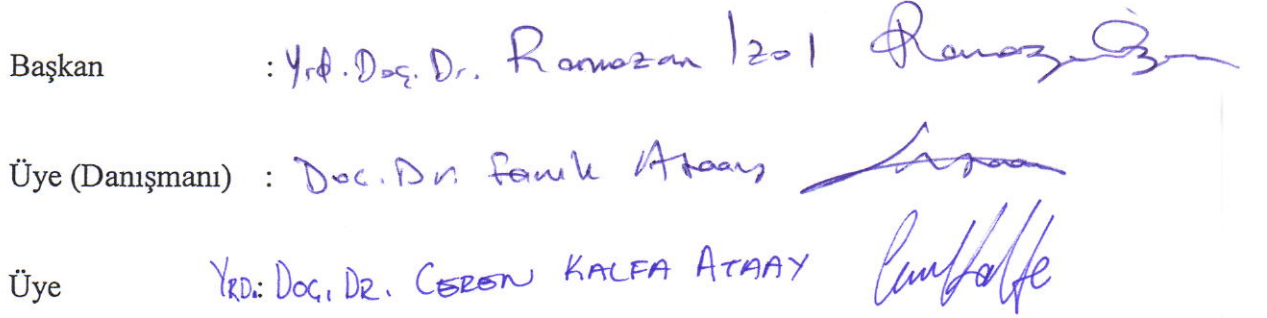 Başkan : Yrd. Doç. Dr. Ramazan İzol
Üye (Danışmanı) : Doc. Dr. Faruk Ataay
Üye YRD.: DOÇ. DR. CEREN KALFA ATAAY